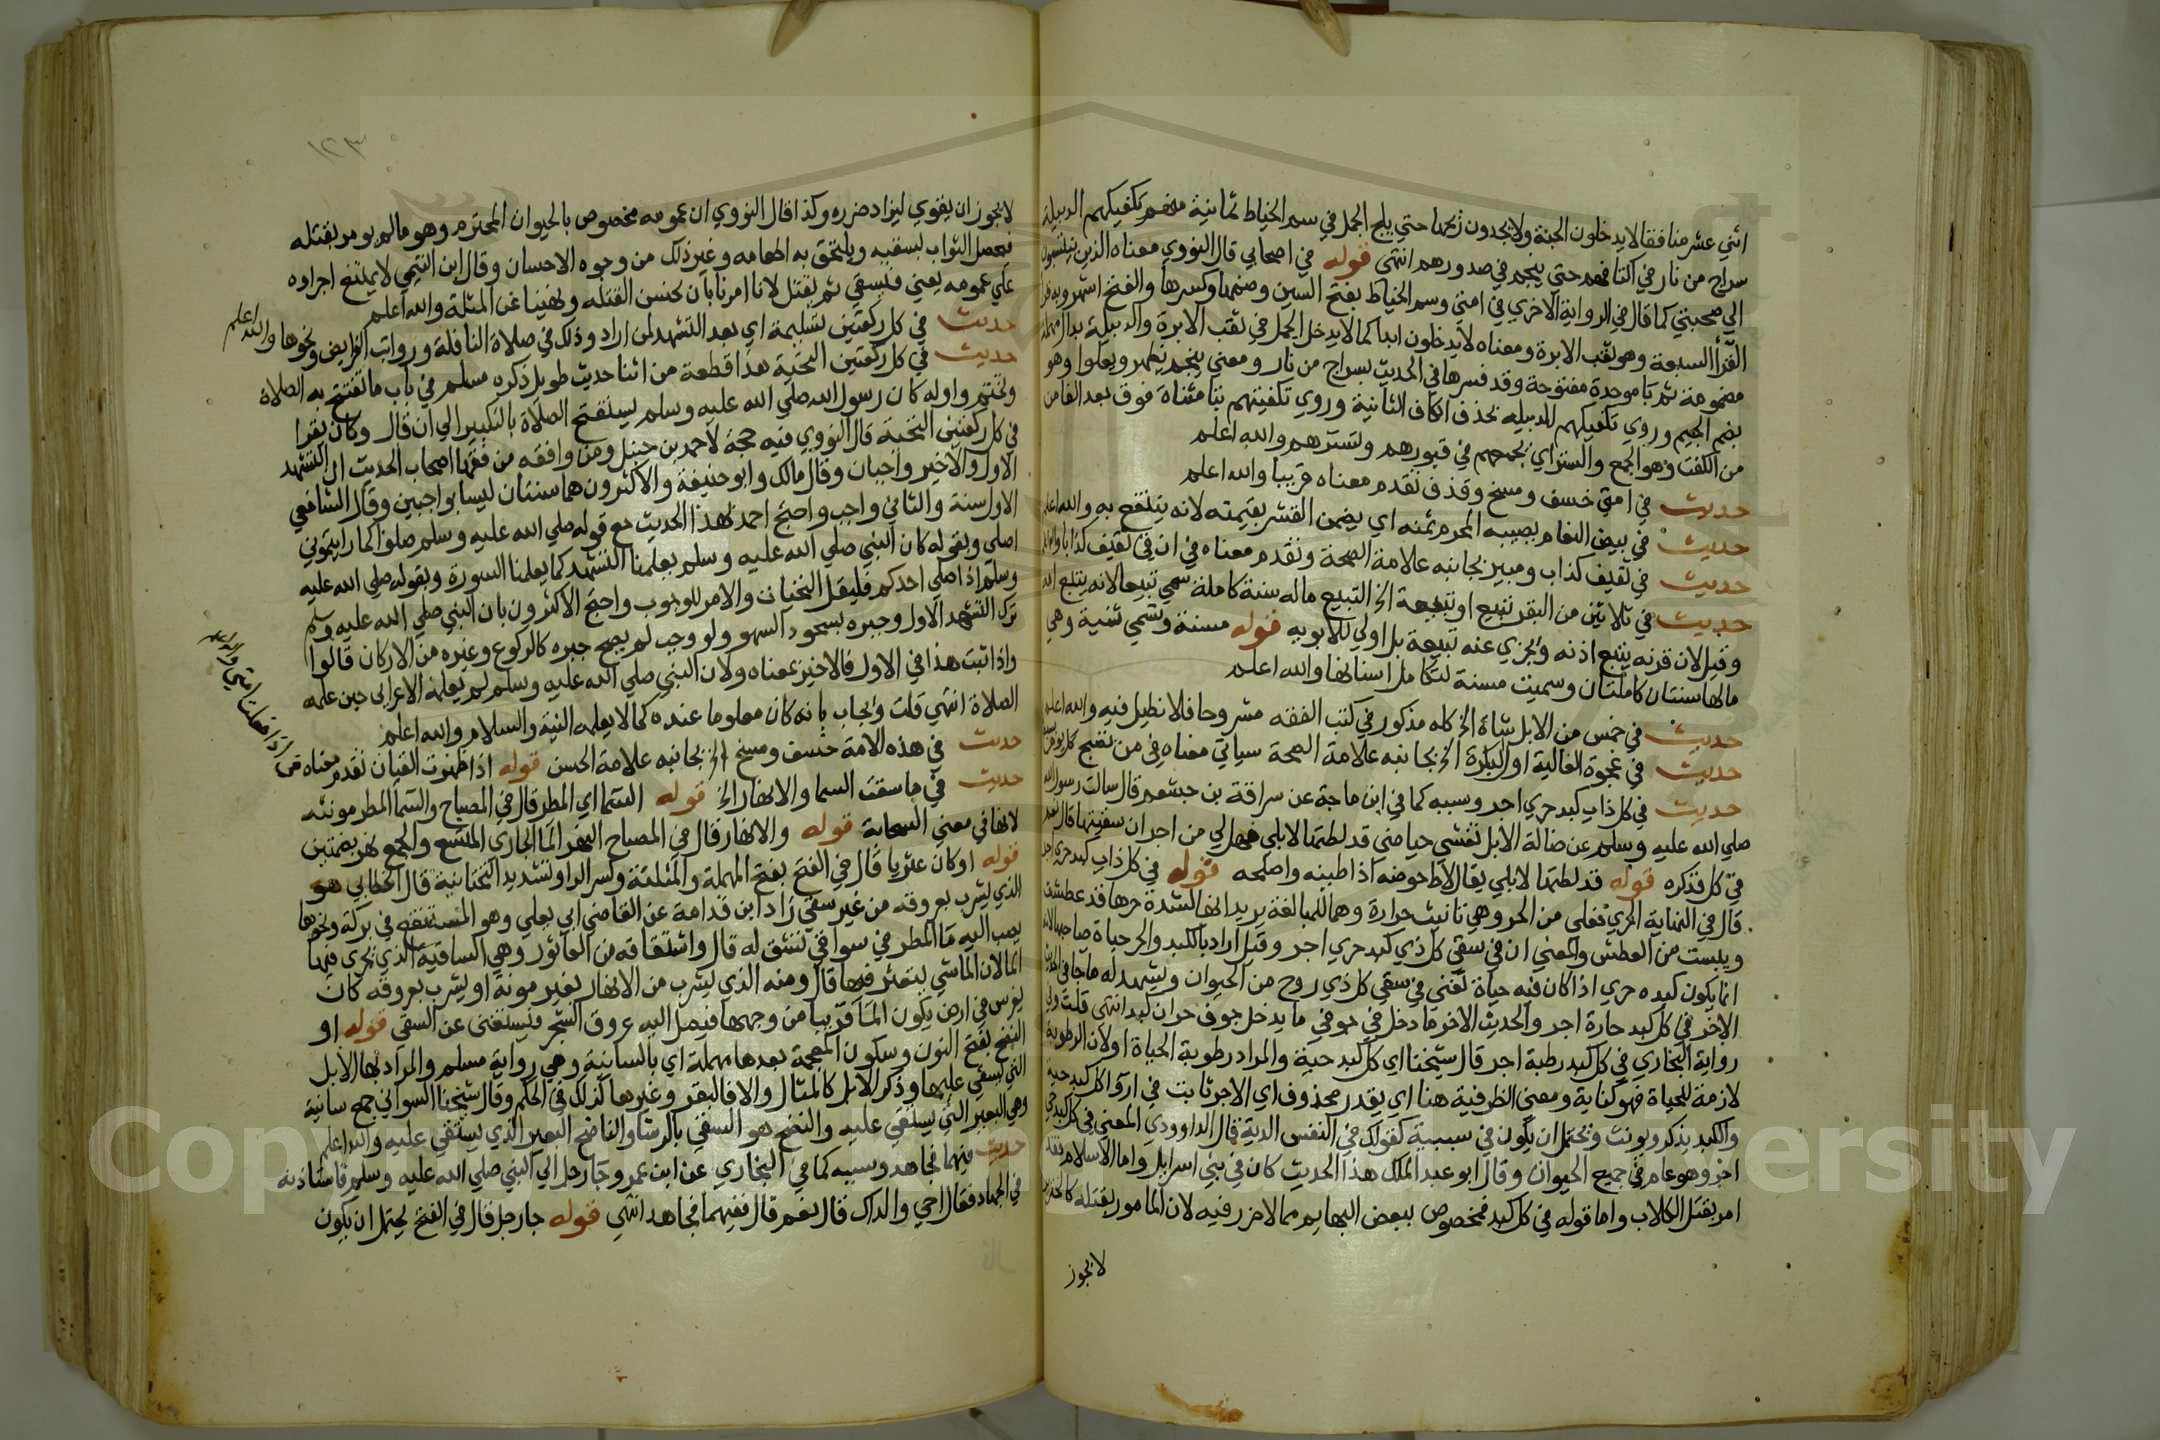 اثني عشر منافقا لا يدخلون الجنة ولا يجدون ريحها حتي يلج الجمل في سم الخياط ثمانية منهم تكفيكهم الدبيلة
سراج من نار في اكتافهم حتي ينجم في صدورهم انتهى قوله في اصحابي قال النووي معناه الذين ينسبون
الي صحبتي كما قال في الرواية الاخري في امتي وسم الخياط بفتح السين وضمها وكسرها والفتح اشهر وبه قرا
القرأ السبعة وهو ثقب الابرة ومعناه لا يدخلون ابدا كما لا يدخل الجمل في ثقب الابرة والدبيلة بدال مهملة
مضمومة ثم با موحدة مفتوحة وقد فسرها في الحديث بسراج من نار ومعني ينجم يظهر ويعلوا وهو
بضم الجيم وروي تكفيكهم الدبيله بحذف الكاف الثانية وروي تكفتهم بتا مثناة فوق بعد الفا من
من الكفت وهو الجمع والستر اي تجمعهم في قبورهم وتسترهم والله اعلم
حديث في امتي خسف ومسخ وقذف تقدم معناه قريبا والله اعلم
حديث في بيض النعام يصيبه المحرم ثمنه اي يضمن القشر بقيمته لانه ينتفع به والله اعلم
حديث في ثقيف كذاب ومبير بجانبه علامة الصحة وتقدم معناه في ان في ثقيف كذابا
حديث في ثلاثين من البقر تبيع او تبيعة الخ التبيع ماله سنة كاملة سمي تبيعا لانه يتبع امه
وقيل لان قرنه يتبع اذنه ويجزي عنه تبيعة بل اولي للانوبه قوله مسنة وتسمي ثنية وهي
مالها سنتان كاملتان وسميت مسنة لتكامل اسنانها والله اعلم
حديث في خمس من الابل شاة الخ كله مذكور في كتب الفقه مشروحا فلا نطيل فيه والله اعلم
حديث في عجوة العالية اول البكرة الخ بجانبه علامة الصحة سياتي معناه في من تصبح كل يوم
حديث في كل ذات كبد حري اجر وسببه كما في ابن ماجة عن سراقة بن جشعم قال سالت رسول الله
صلي الله عليه وسلم عن ضالة الابل تغشي حياضي قد لطتها لابلي فهل لي من اجر ان سقيتها قال نعم
في كل فذكره قوله قد لطتها لابلي يقال لاط حوضه اذا طينه واصلحه قوله في كل ذات كبد حري اجر
قال في النهاية الحري فعلي من الحر وهي تانيث حران وهما للمبالغة يريد انها لشدة حرها قد عطشت
ويبست من العطش والمعني ان في سقي كل ذي كبد حري اجر وقيل اراد بالكبد والحر حياة صاحبها لانه
انما يكون كبده حري اذا كان فيه حياة لعني في سقي كل ذي روح من الحيوان ويشهد له ما جا في الحديث
الاخر في كل كبد حارة اجر والحديث الاخر ما دخل في جوفي ما يدخل جوف حران كبد انتهى قلت وفي
رواية البخاري في كل كبد رطبة اجر قال شيخنا اي كل كبد حية والمراد رطوبة الحياة او لان الرطوبة
لازمة للحياة فهو كناية ومعني الظرفية هنا اي يقدر محذوف اي الاجر ثابت في اروا كل كبد حية
والكبد يذكر ويونث ويحتمل ان يكون في سببية كقولك في النفس الدية قال الداوودي المعني في كل كبد حي
اجر وهو عام في جميع الحيوان وقال ابو عبد الملك هذا الحديث كان في بني اسرايل واما الاسلام فقد
امر بقتل الكلاب واما قوله في كل كبد فمخصوص ببعض البهايم مما لا ضرر فيه لان المامور بقتله كالخنزير
لا يجوز
١٢٣
لا يجوز ان يقوي ليزداد ضرره وكذا قال النووي ان عمومه مخصوص بالحيوان المحترم وهو مالم يومر بقتله
فيحصل الثواب لسقيه ويلتحق به اطعامه وغير ذلك من وجوه الاحسان وقال ابن التيمي لا يمتنع اجراوه
علي عمومه يعني فيسقي ثم يقتل لانا امرنا بان نحسن القتله ونهينا عن المثلة والله اعلم
حديث في كل ركعتين تسليمة اي بعد التشهد لمن اراد وذلك في صلاة النافلة ورواتب الفرايض ونحوها والله اعلم
حديث في كل ركعتين التحية هذا قطعة من اثنا حديث طويل ذكره مسلم في باب ما تفتتح به الصلاة
وتختتم واوله كان رسول الله صلي الله عليه وسلم يستفتح الصلاة بالتكبير الي ان قال وكان يقرا
في كل ركعتين التحية قال النووي فيه حجة لاحمد بن حنبل ومن وافقه من فقها اصحاب الحديث ان التشهد
الاول والاخير واجبان وقال مالك وابو حنيفة والاكثرون هما سنتان ليسا بواجبين وقال الشافعي
الاول سنة والثاني واجب واحتج احمد بهذا الحديث مع قوله صلي الله عليه وسلم صلوا كما رايتموني
اصلي وبقوله كان النبي صلي الله عليه وسلم يعلمنا التشهد كما يعلمنا السورة وبقوله صلي الله عليه
وسلم اذا صلي احدكم فليقل التحيات والامر للوجوب واحتج الاكثرون بان النبي صلي الله عليه وسلم
ترك التشهد الاول وجبره بسجود السهو ولو وجب لم يصح جبره كالركوع وغيره من الاركان قالوا
واذا ثبت هذا في الاول فالاخير بمعناه ولان النبي صلي الله عليه وسلم لم يعلمه الاعرابي حين علمه
الصلاة انتهي قلت ويجاب بانه كان معلوما عنده كما لا يعلمه النية والسلام والله اعلم
حديث في هذه الامة خسف ومسخ الخ بجانبه علامة الحسن قوله اذا ظهرت القيان تقدم معناه
حديث في ما سقت السما والانهار الخ قوله السما اي المطر قال في المصباح والسما المطر مونثه
لانها في معني السحابة قوله والانهار قال في المصباح النهر الما الجاري المتسع والجمع نهر بضمتين
قوله او كان عثريا قال في الفتح بفتح المهملة والمثلثة وكسر الرا وتشديد التحتانية قال الخطابي هو
الذي يشرب بعروقه من غير سقي زاد ابن قدامة عن القاضي ابي يعلي وهو المستنقع في بركة ونحوها
يصب اليه ما المطر في سواقي تشق له قال واشتقاقه من العاثور وهي الساقية الذي يجري فيها
الما لان الماشي يتعثر فيها قال ومنه الذي يشرب من الانهار بغير مونة او يشرب بعروقه كان
يغرس في ارض يكون الما قريبا من وجهها فيصل اليه عروق الشجر فيستغني عن السقي قوله او
النضح بفتح النون وسكون المعجمة بعدها مهملة اي بالسانية وهي رواية مسلم والمراد بها الابل
التي يستقي عليها وذكر الابل كالمثال والا فالبقر وغيرها كذلك في الحكم وقال شيخنا السواني جمع سانية
وهي البعير التي يستقي عليه والنضح هو السقي بالرشا والناضح البعير الذي يستقي عليه والله اعلم
حديث فيهما فجاهد وسببه كما في البخاري عن ابن عمرو جا رجل الي النبي صلي الله عليه وسلم فاستاذنه
في الجهاد فقال احي والداك قال نعم قال ففيهما فجاهد انتهي قوله جا رجل قال في الفتح يحتمل ان يكون
Copy ersity